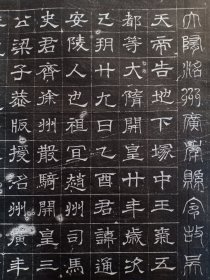 大隋洺州廣年縣令故吴
天帝告地下塚中王炁五
都等大隋開皇廿年歲次
廿九日乙酉君諱通
安陵人也祖宜趙州司馬
史君齊徐州散騎開皇三
公梁子恭版授洺州廣年